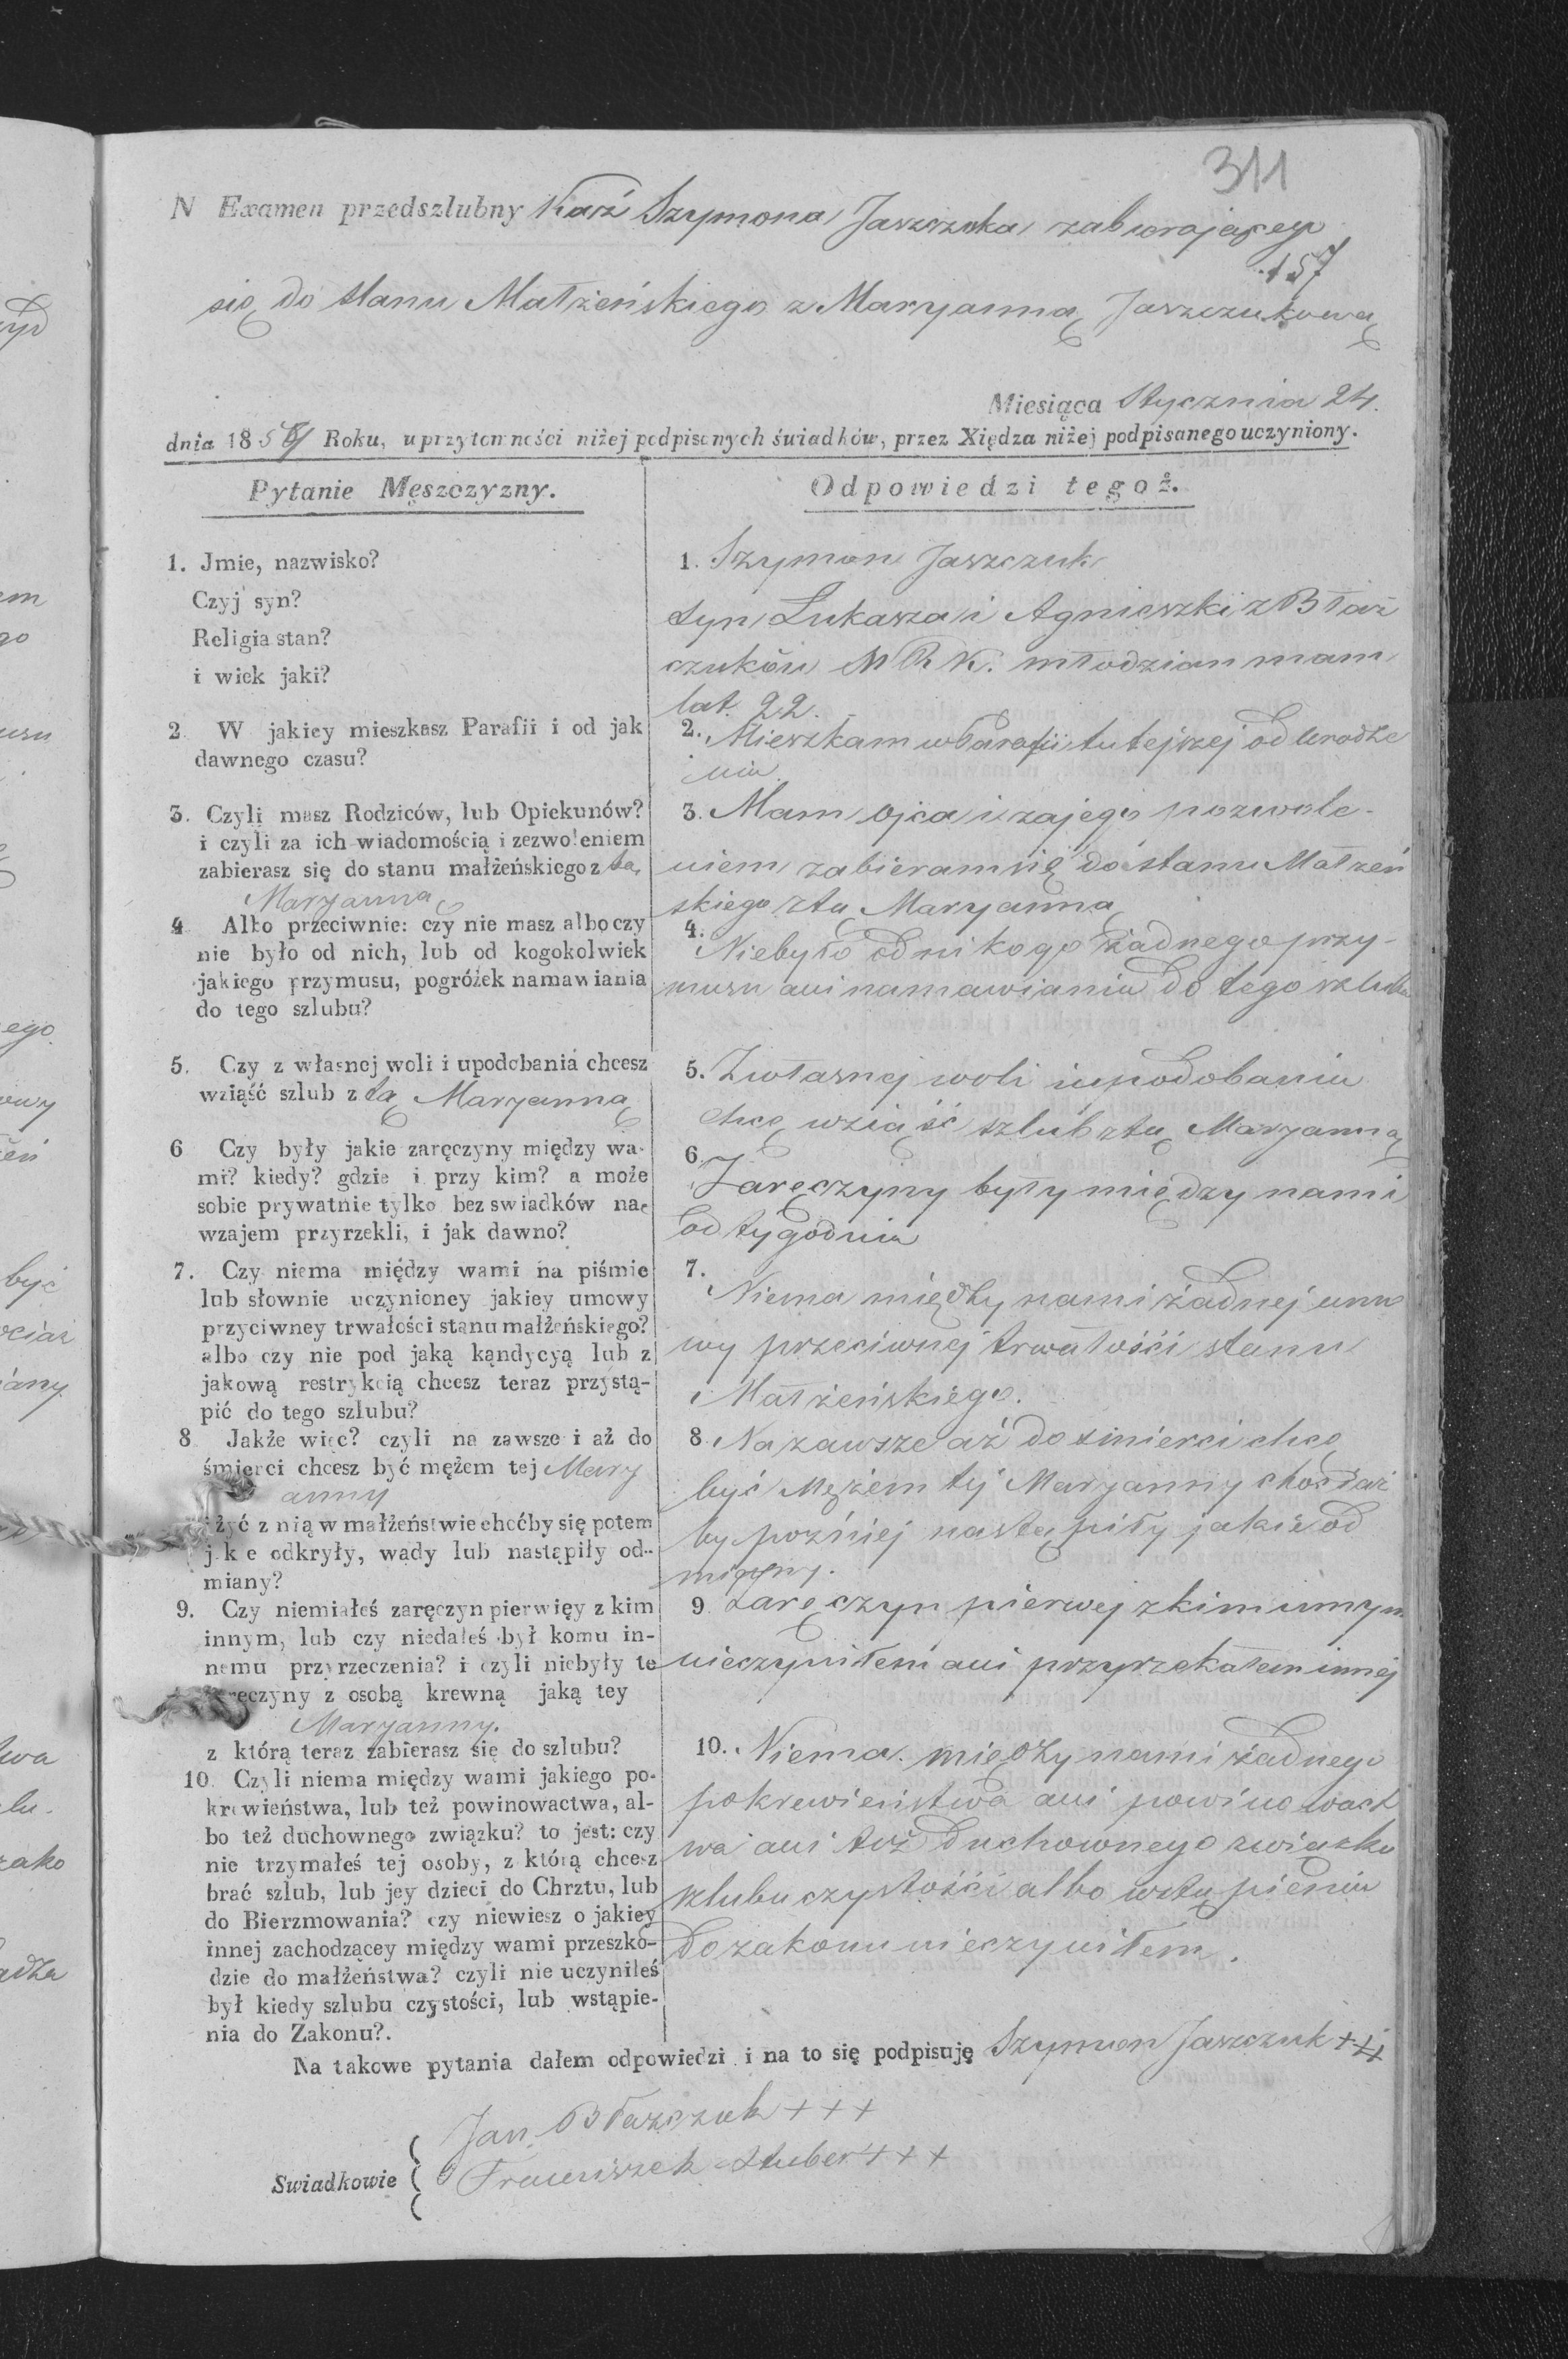 311
N Examen przedszlubny Szymona Jaszczuka zabierającego
157
się do stanu Małżeńskiego z Maryanną Jaszczukową
Miesiąca Stycznia 24.
dnia 185 Roku, u przytomności niżej podpisanych świadków, przez Xiędza niżej podpisanego uczyniony.
Pytanie Męszczyzny.
1. Jmie, nazwisko?
Czyj syn?
Religia stan?
i wiek jaki?
2 W jakiey mieszkasz Parafii i od jak
dawnego czasu?
3. Czyli masz Rodziców, lub Opiekunów?
i czyli za ich wiadomością i zezwoleniem
zabierasz się do stanu małżeńskiego z tą
Maryanną
4 Albo przeciwnie: czy nie masz albo czy
nie było od nich, lub od kogokolwiek
jakiego przymusu, pogróżek namawiania
do tego szlubu?
5. Czy z własnej woli i upodobania chcesz
wziąść szlub z tą Maryanną
6 Czy były jakie zaręczyny między wa-
mi? kiedy? gdzie i przy kim? a może
sobie prywatnie tylko bez swiadków na-
wzajem przyrzekli, i jak dawno?
7. Czy niema między wami na piśmie
lub słownie uczynioney jakiey umowy
przyciwney trwałości stanu małżeńskiego?
albo czy nie pod jaką kąndycyą lub z
jakową restrykcią chcesz teraz przystą-
pić do tego szlubu?
8 Jakże więc? czyli na zawsze i aż do
śmierci chcesz być mężem tej Mary
anny
i żyć z nią w małżeństwie choćby się potem
jakie odkryły, wady lub nastąpiły od-
miany?
9. Czy niemiałeś zaręczyn pierwięy z kim
innym, lub czy niedałeś był komu in-
nemu przyrzeczenia? i czyli niebyły te
zaręczyny z osobą krewną jaką tey
Maryanny.
z którą teraz zabierasz się do szlubu?
10 Czyli niema między wami jakiego po-
krewieństwa, lub też powinowactwa, al-
bo też duchownego związku? to jest: czy
nie trzymałeś tej osoby, z którą chcesz
brać szlub, lub jey dzieci do Chrztu, lub
do Bierzmowania? czy niewiesz o jakiey
innej zachodzącey między wami przeszko-
dzie do małżeństwa? czyli nie uczyniłeś
był kiedy szlubu czystości, lub wstąpie-
nia do Zakonu?.
Odpowiedzi tegoż.
1. Szymon Jaszczuk
syn Łukasza i Agnieszki z Błaż
czuków R. K. młodzian mam
lat 22.
2. Mieszkam w Parafii tutejszej od urodze
nia
3. Mam ojca i za jego pozwole-
niem zabieram się do stanu Małżeń
skiego z tą Maryanną
4. Niebyło od nikogo żadnego przy-
musu ani namawiania do tego szlubu
5. Z własnej woli i upodobania
chcę wziąść szlub z tą Maryanną
6. Zaręczyny były między nami
od tygodnia
7. Niema między nami żadnej umo
wy przeciwnej trwałości stanu
Małżeńskiego.
8. Na zawsze aż do śmierci chcę
być Mężem tej Maryanny chociaż
by poźniej nastąpiły jakie od
miany.
9. Zaręczyn pierwej z kim innym
nieczyniłem ani przyrzekałem innej
10. Niema między nami żadnego
pokrewieństwa ani powinowact
wa ani też duchownego związku
szlubu czystości albo wstąpienia
do zakonu nieczyniłem.
Na takowe pytania dałem odpowiedzi i na to się podpisuję Szymon Jaszczuk +++
Jan Błaszczuk +++
Swiadkowie Franciszek Stuber +++